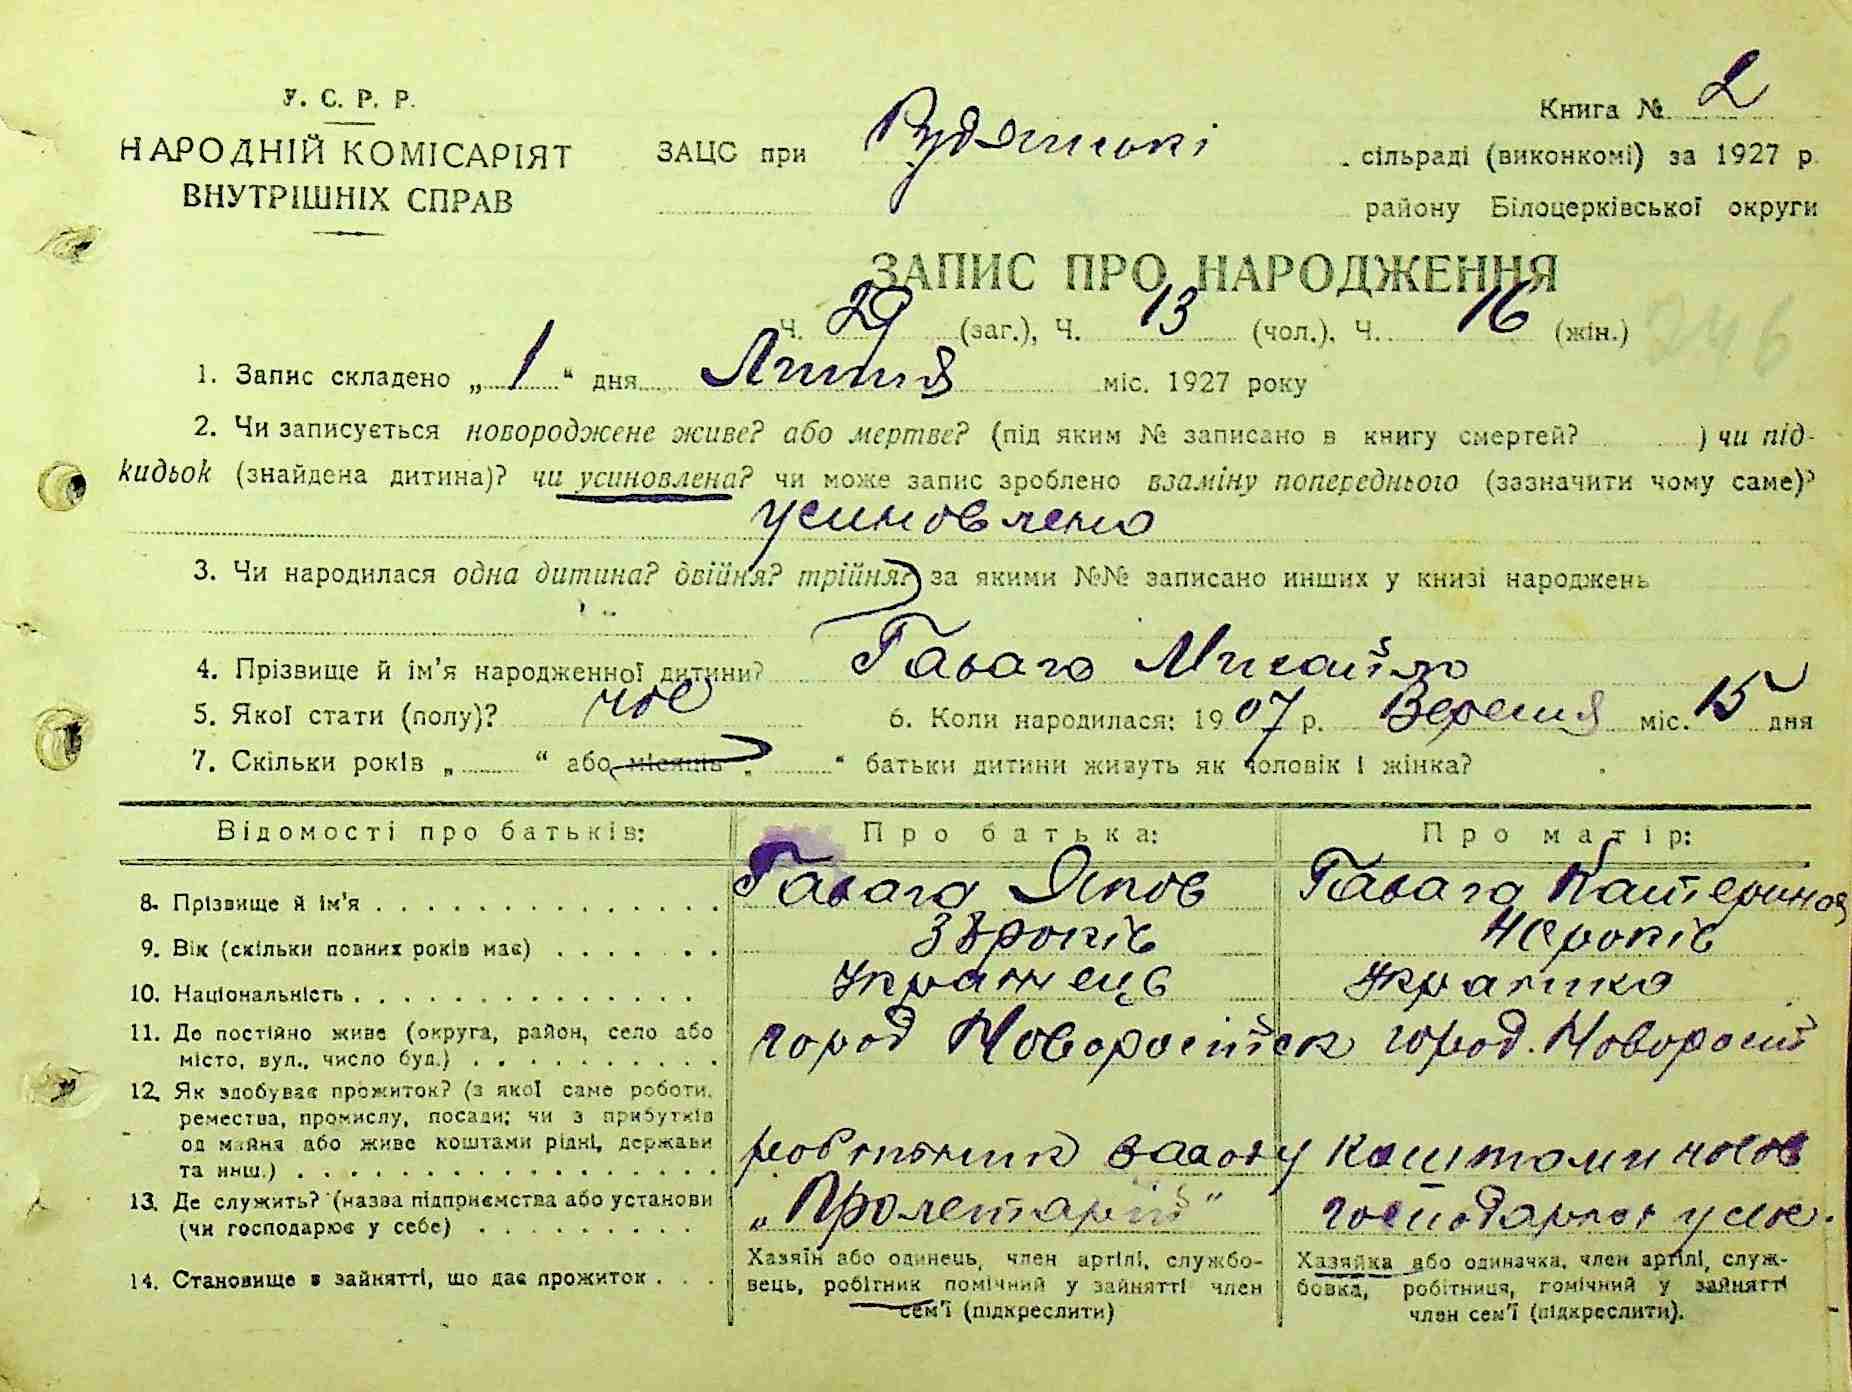 У. С. Р. Р.
НАРОДНІЙ КОМІСАРІЯТ
ВНУТРІШНІХ СПРАВ
Книга № 2
ЗАЦС при Рудянські сільраді (виконкомі) за 1927 р.
району Білоцерківської округи
ЗАПИС ПРО НАРОДЖЕННЯ
Ч. 29 (заг.), Ч. 13 (чол.), Ч. 16 (жін.) 246
1. Запис складено „ 1 “ дня Липня міс. 1927 року
2. Чи записується новороджене живе? або мертве? (під яким № записано в книгу смертей? ) чи під-
кидьок (знайдена дитина)? чи усиновлена? чи може запис зроблено взаміну попереднього (зазначити чому саме)?
усиновлено
3. Чи народилася одна дитина? двійня? трійня? за якими №№ записано инших у книзі народжень
4. Прізвище й ім'я народженної дитини? Михайло
5. Якої стати (полу)? чол 6. Коли народилася: 1907 р. Вересня міс. 15 дня
7. Скільки років „ “ або місяців „ “ батьки дитини живуть як чоловік і жінка?
Відомості про батьків: Про батька: Про матір:
8. Прізвище й ім'я Яков Катерина
9. Вік (скільки повних років має) років років
10. Національність українець українка
11. Де постійно живе (округа, район, село або
місто, вул., число буд.) город Новоросійск город. Новоросій
12. Як здобуває прожиток? (з якої саме роботи,
ремества, промислу, посади; чи з прибутків
од майна або живе коштами рідні, держави
та инш.) робітник заводу коштами чолов
13. Де служить? (назва підприємства або установи
(чи господарює у себе) „Пролетарій“ господарює у себе.
14. Становище в зайнятті, що дає прожиток
Хазяїн або одинець, член артілі, службо-
вець, робітник помічний у зайнятті член
сем'ї (підкреслити)
Хазяйка або одиначка, член артілі, служ-
бовка, робітниця, помічний у зайнятті
член сем'ї (підкреслити).